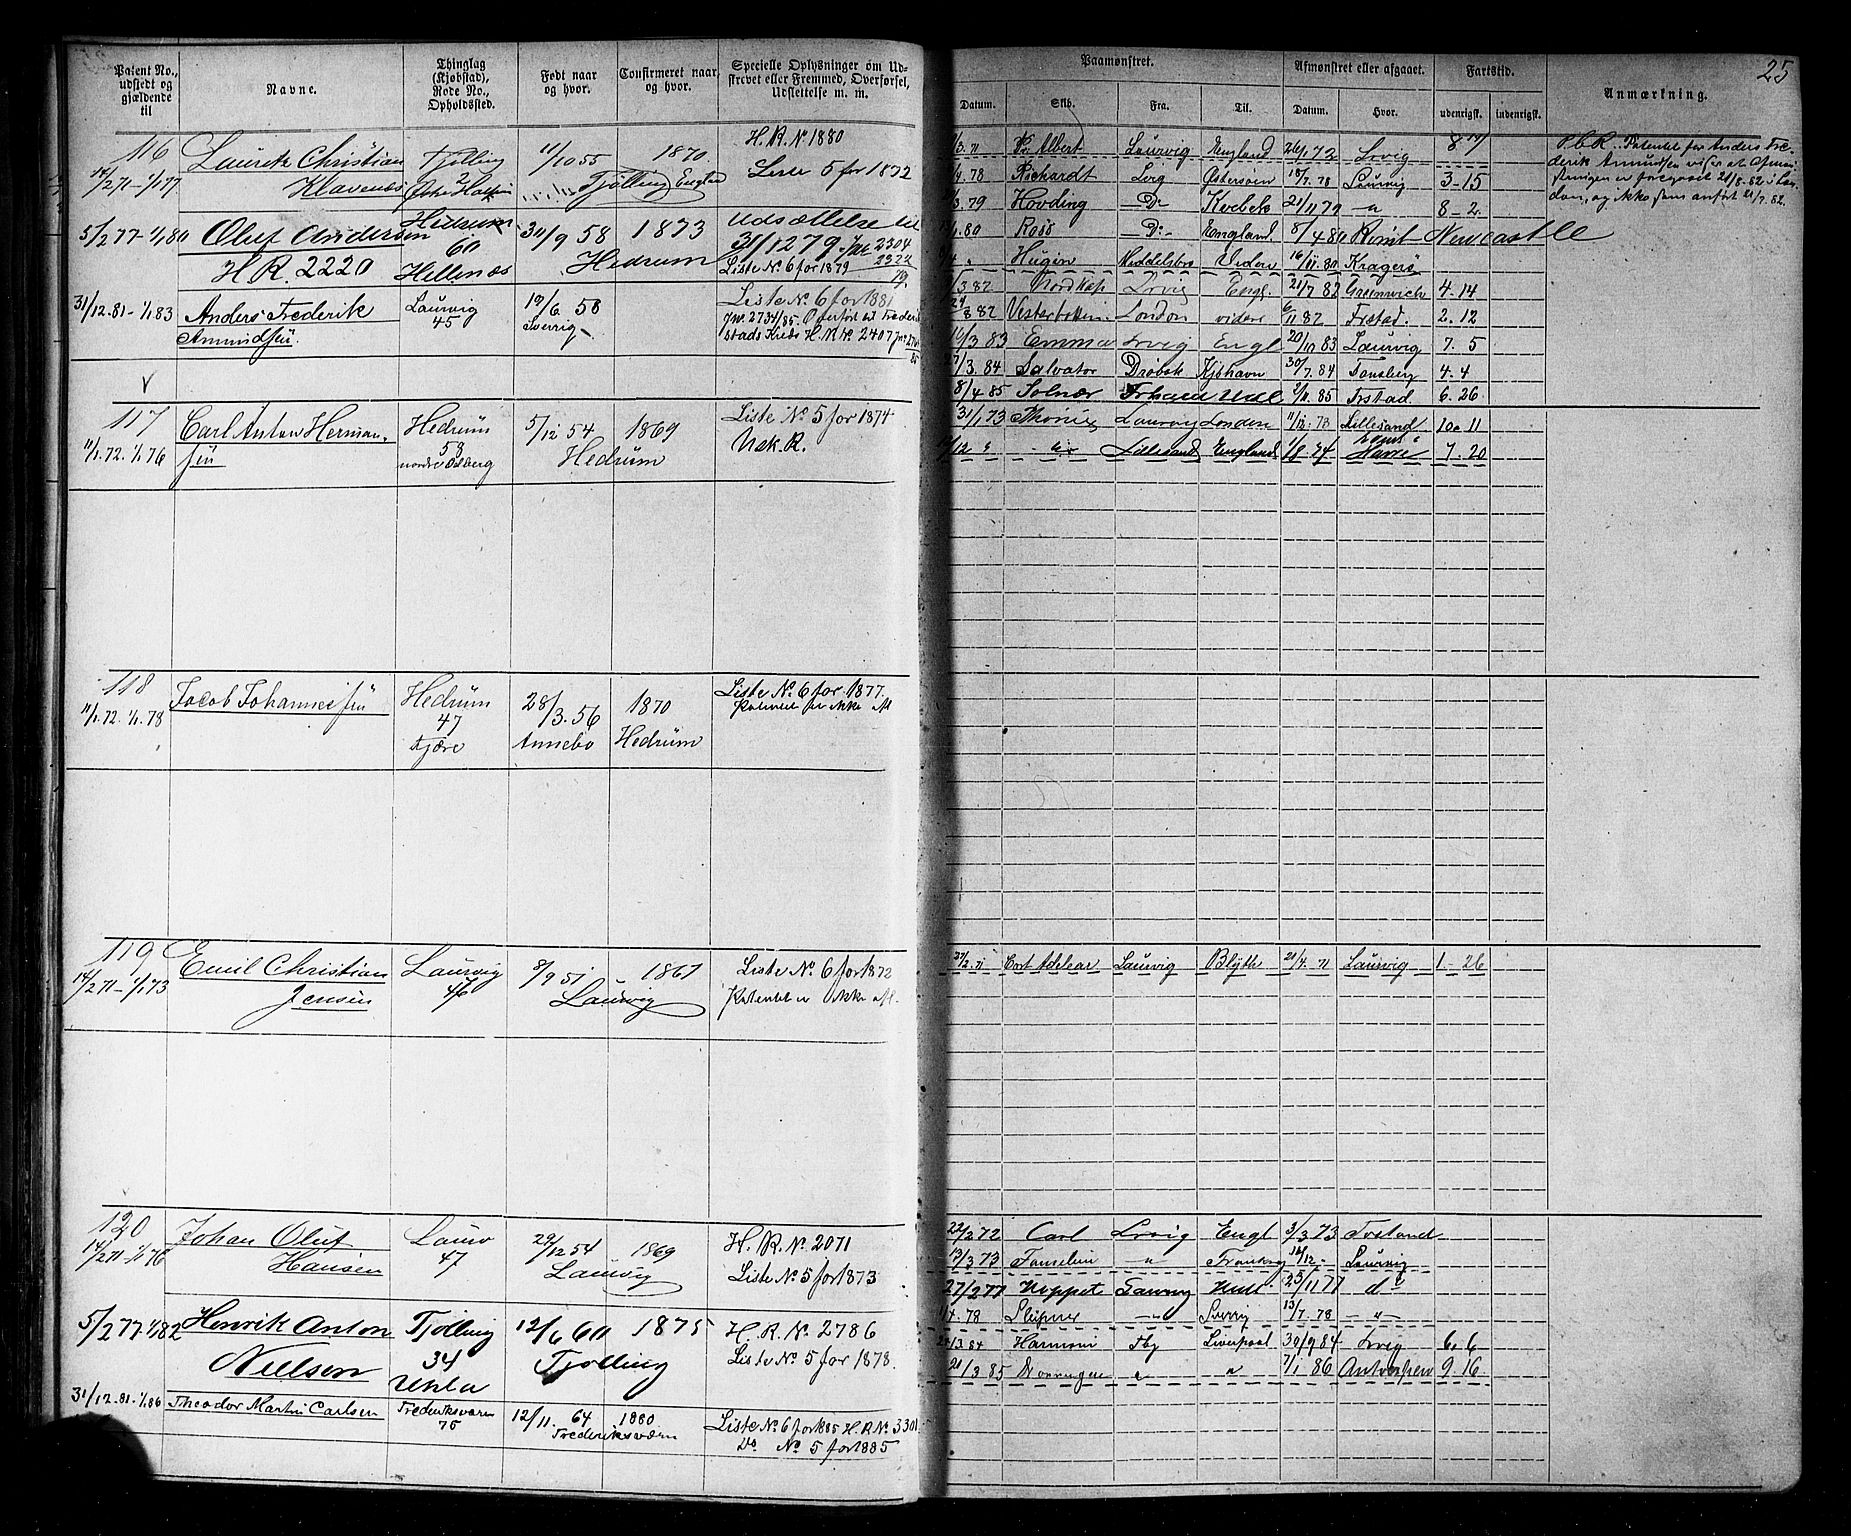 25
Patent No., udstedt og gjældende til
Navne.
Thinglag (Kjøbstad), Rode No., Opholdssted.
Født naar og hvor.
Confirmeret naar og hvor.
Specielle Oplysninger om Udstrevet eller Fremmed, Overførsel, Udslettelse m. m.
Paamønstret.
Afmønstret eller afgaaet.
Fartstid.
Anmærkning.
Datum. Skib. Fra. Til. Datum. Hvor. udenrigsk. indenrigsk.
116
14/2 71 - 1/1 77
Lauritz Christian
Klavenæs
Tjølling
2
11/10 55
1870
Tjølling
H. R. N° 1880
Liste 5 for 1872
5/2 77 - 1/1 80
Oluf Andersen
H R. 2220
Hedrum
60
Hellenæs
30/9 58
1873
Hedrum
Udsættelse til
31/12 79
2304
2322
Liste N° 6 for 1879
31/12.81 - 1/1 83
Anders Frederik
Amundsen
Laurvig
45
19/6 58
Sverrig
Liste N° 6 for 1881
Jno. 2734/85 Overført til Frederikstads Kreds H. R. N° 2407
117
11/1.72. 1/1 76
Carl Anton Hermansen
Hedrum
58
nordre Odberg
5/12 54
1869
Hedrum
Liste N° 5 for 1874
Udsk. R.
118
11/1.72. 1/1.78
Jacob Johannessen
Hedrum
47
28/3.56
Annebo
1870
Hedrum
Liste N° 6 for 1877.
Patentet er ikke afl
119
14/2 71 - 1/1 73
Emil Christian
Jensen
Laurvig
46
8/9 51
1867
Laurvig
Liste N° 6 for 1872
Patentet er ikke afl.
120
14/2 71 - 1/1 76
Johan Oluf
Hansen
Laurv
47
29/12 54
1869
Laurvig
H. R. N° 2071
Liste N° 5 for 1873
5/2 77 - 1/1 82
Henrik Anton
Nielsen
Tjølling
34
Ukla
12/6 60
1875
Tjølling
H. R. N° 2786
Liste N° 5 for 1878.
31/12.81 - 1/1.86
Theodor Martin Carlsen
Frederiksværn
75
12/11. 64
1880
Frederiksværn
Liste N° 6 for 1885 H. R. N° 3301
Do N° 5 for 1885
/3.71 Pr Albert Laurvig England 26/1 72 Lrvig
/4.78 Richardt Lrg Østersøen 18/7.78 Laurvig 3-15
/3.79 Høvding D° Kvebek 21/11 79 8-2
/1.80 Ross D° England 8/4 80 Newcastle
Hugin Middelsbro Videre 16/11.80 Kragerø
/3 82 Nordkap Lrvig Engl. 21/7 82 Greenwich 4.14
29/8 82 Vesterbotten London videre 6/11 82 Frstad. 2.12
16/3 83 Emma Lrvig Engl 20/10 83 Laurvig 7.5
/3.84 Salvator Drøbak Kjøbhavn 30/7.84 Tønsberg 4.4
8/4.85 Solnær Frhavn Udl 2/11.85 Frstad. 6.26
P. C. R. Patentet for Anders Frederik Amundsen viser at Afmønstringen er foregaaet 21/8-82 i London, og ikke som anført 21/7.82.
31/1 73 Laurvig London 11/12.73 Lillesand 10.11
12 " Lillesand England 1/8.74 Havre 7.20
27/2.71 Cort Adelear Laurvig Blyth 21/4.71 Laurvig 1-26
22/2 72 Carl Lrvig Engl 3/3 73 Frstand
13/3 73 " 16/12 Laurvig
27/2 77 Haabet Laurvig Hull 23/11 77 d°
/4.78 Sverrig 13/7.78 - " -
/3.84 Harmoni Tbg Liverpool 30/9 84 Lrvig 6.6
21/3 85 " " 7/1 86 Antverpen 9.16